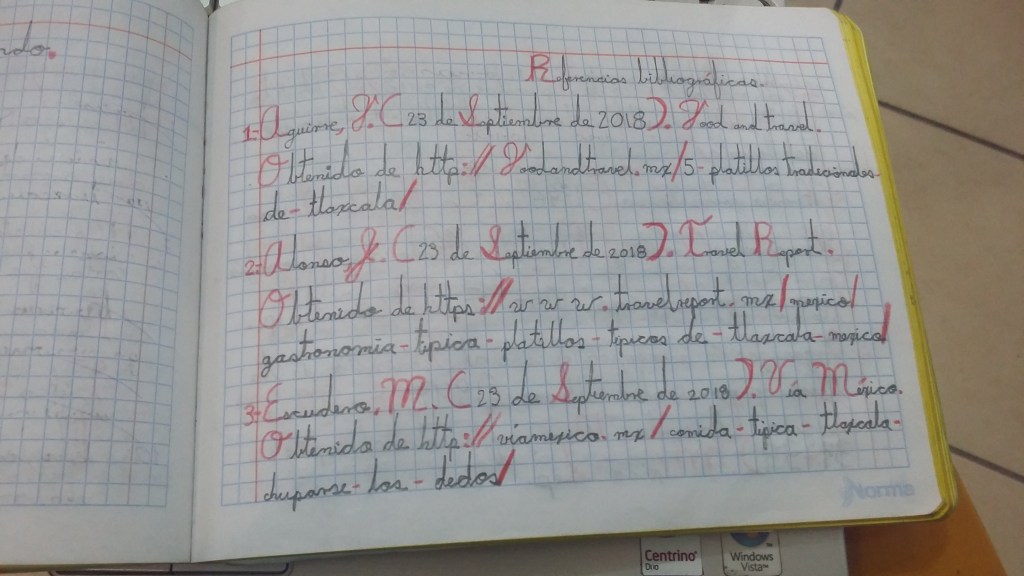 ndo.
Referencias bibliográficas.
1- Aguirre, J. (23 de Septiembre de 2018). Food and travel.
Obtenido de http://foodandtravel.mx/5-platillos tradicionales-
de-tlaxcala/
2- Alonso, J. (23 de Septiembre de 2018). Travel Report.
Obtenido de https://www.travelreport.mx/mexico/
gastronomia-tipica-platillos-tipicos de-tlaxcala-mexico/
3- Escudero, M. (23 de Septiembre de 2018). Vía México.
Obtenido de http://viamexico.mx/comida-tipica-tlaxcala-
chuparse-los-dedos/
Norma
Centrino
Duo
Windows
Vista™